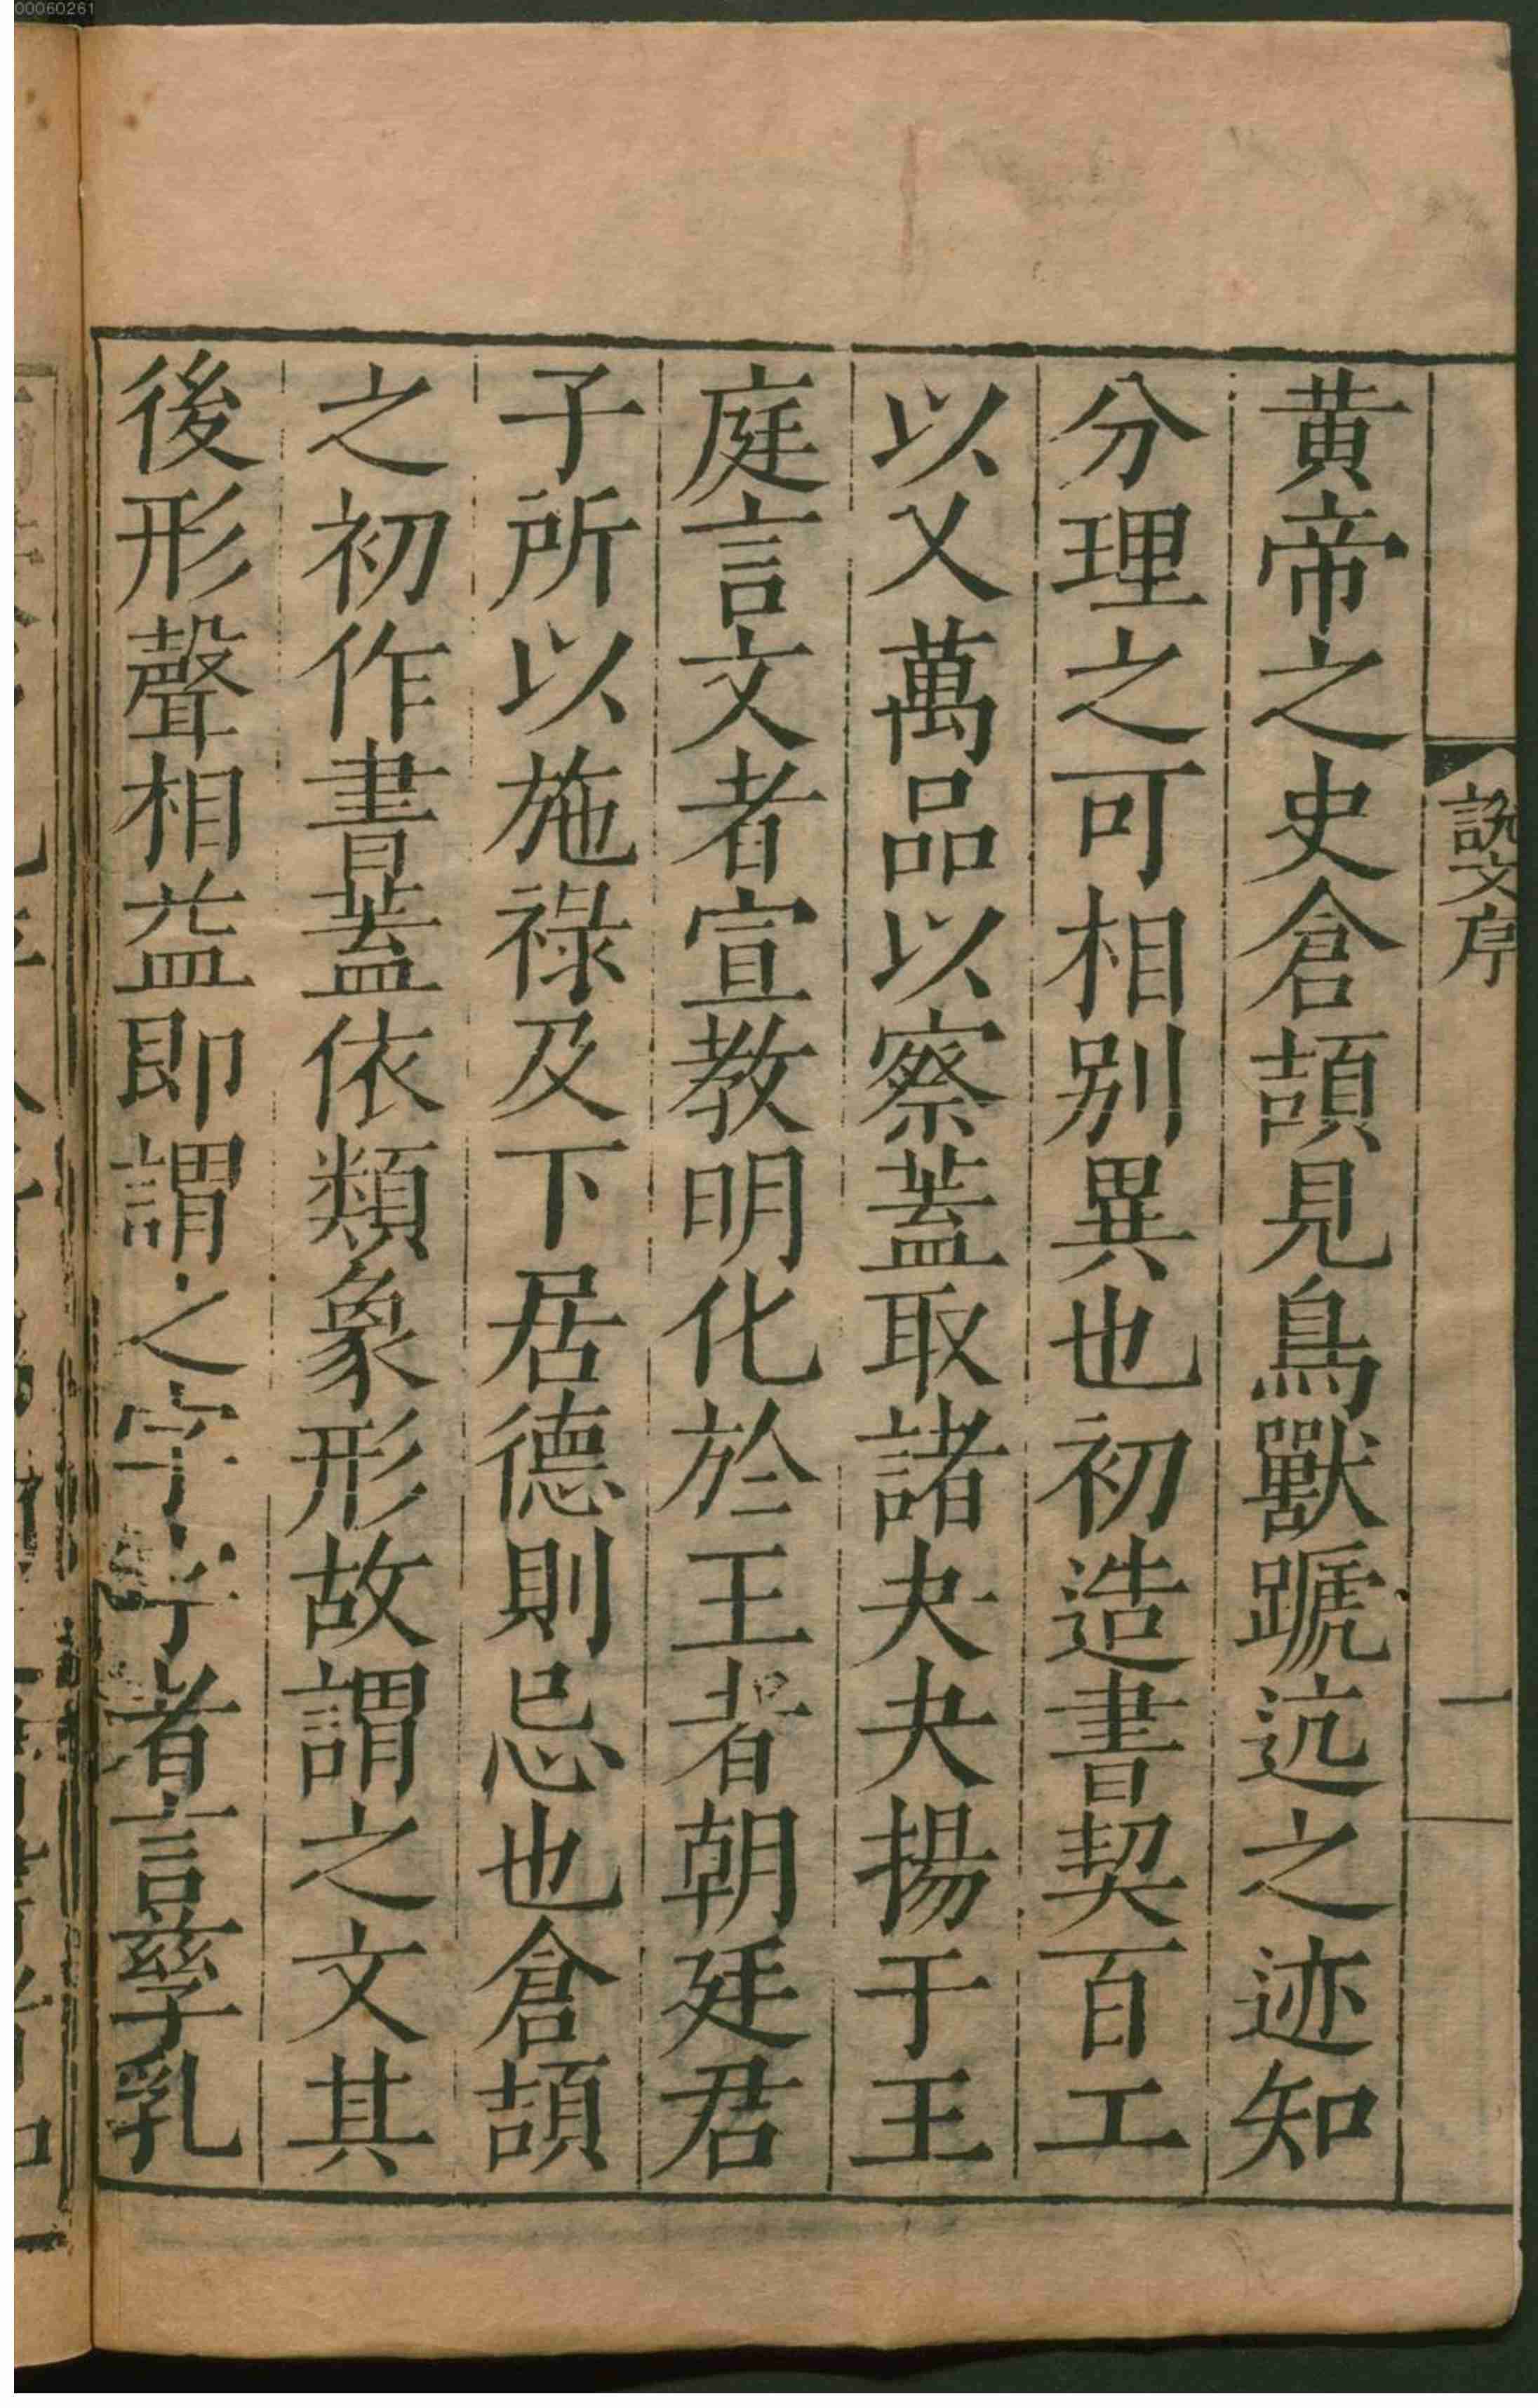 00060261
説文序
一
黄帝之史倉頡見鳥獸蹏迒之迹知
分理之可相别異也初造書契百工
以乂萬品以察蓋取諸夬夬揚于王
庭言文者宣教明化於王者朝廷君
子所以施祿及下居德則忌也倉頡
之初作書蓋依類象形故謂之文其
後形聲相益即謂之字字者言孳乳